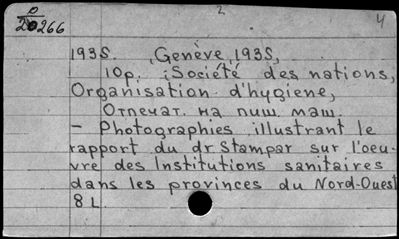 0 2 4
20266
1935. Genève, 1935,
10p. Société des nations,
Organisation d'hygiene,
Отпечат. на пиш. маш.
– Photographies illustrant le
rapport du dr. Stampar sur l'oeu-
vre des Institutions sanitaires
dans les provinces du Nord-Ouest
8 L.